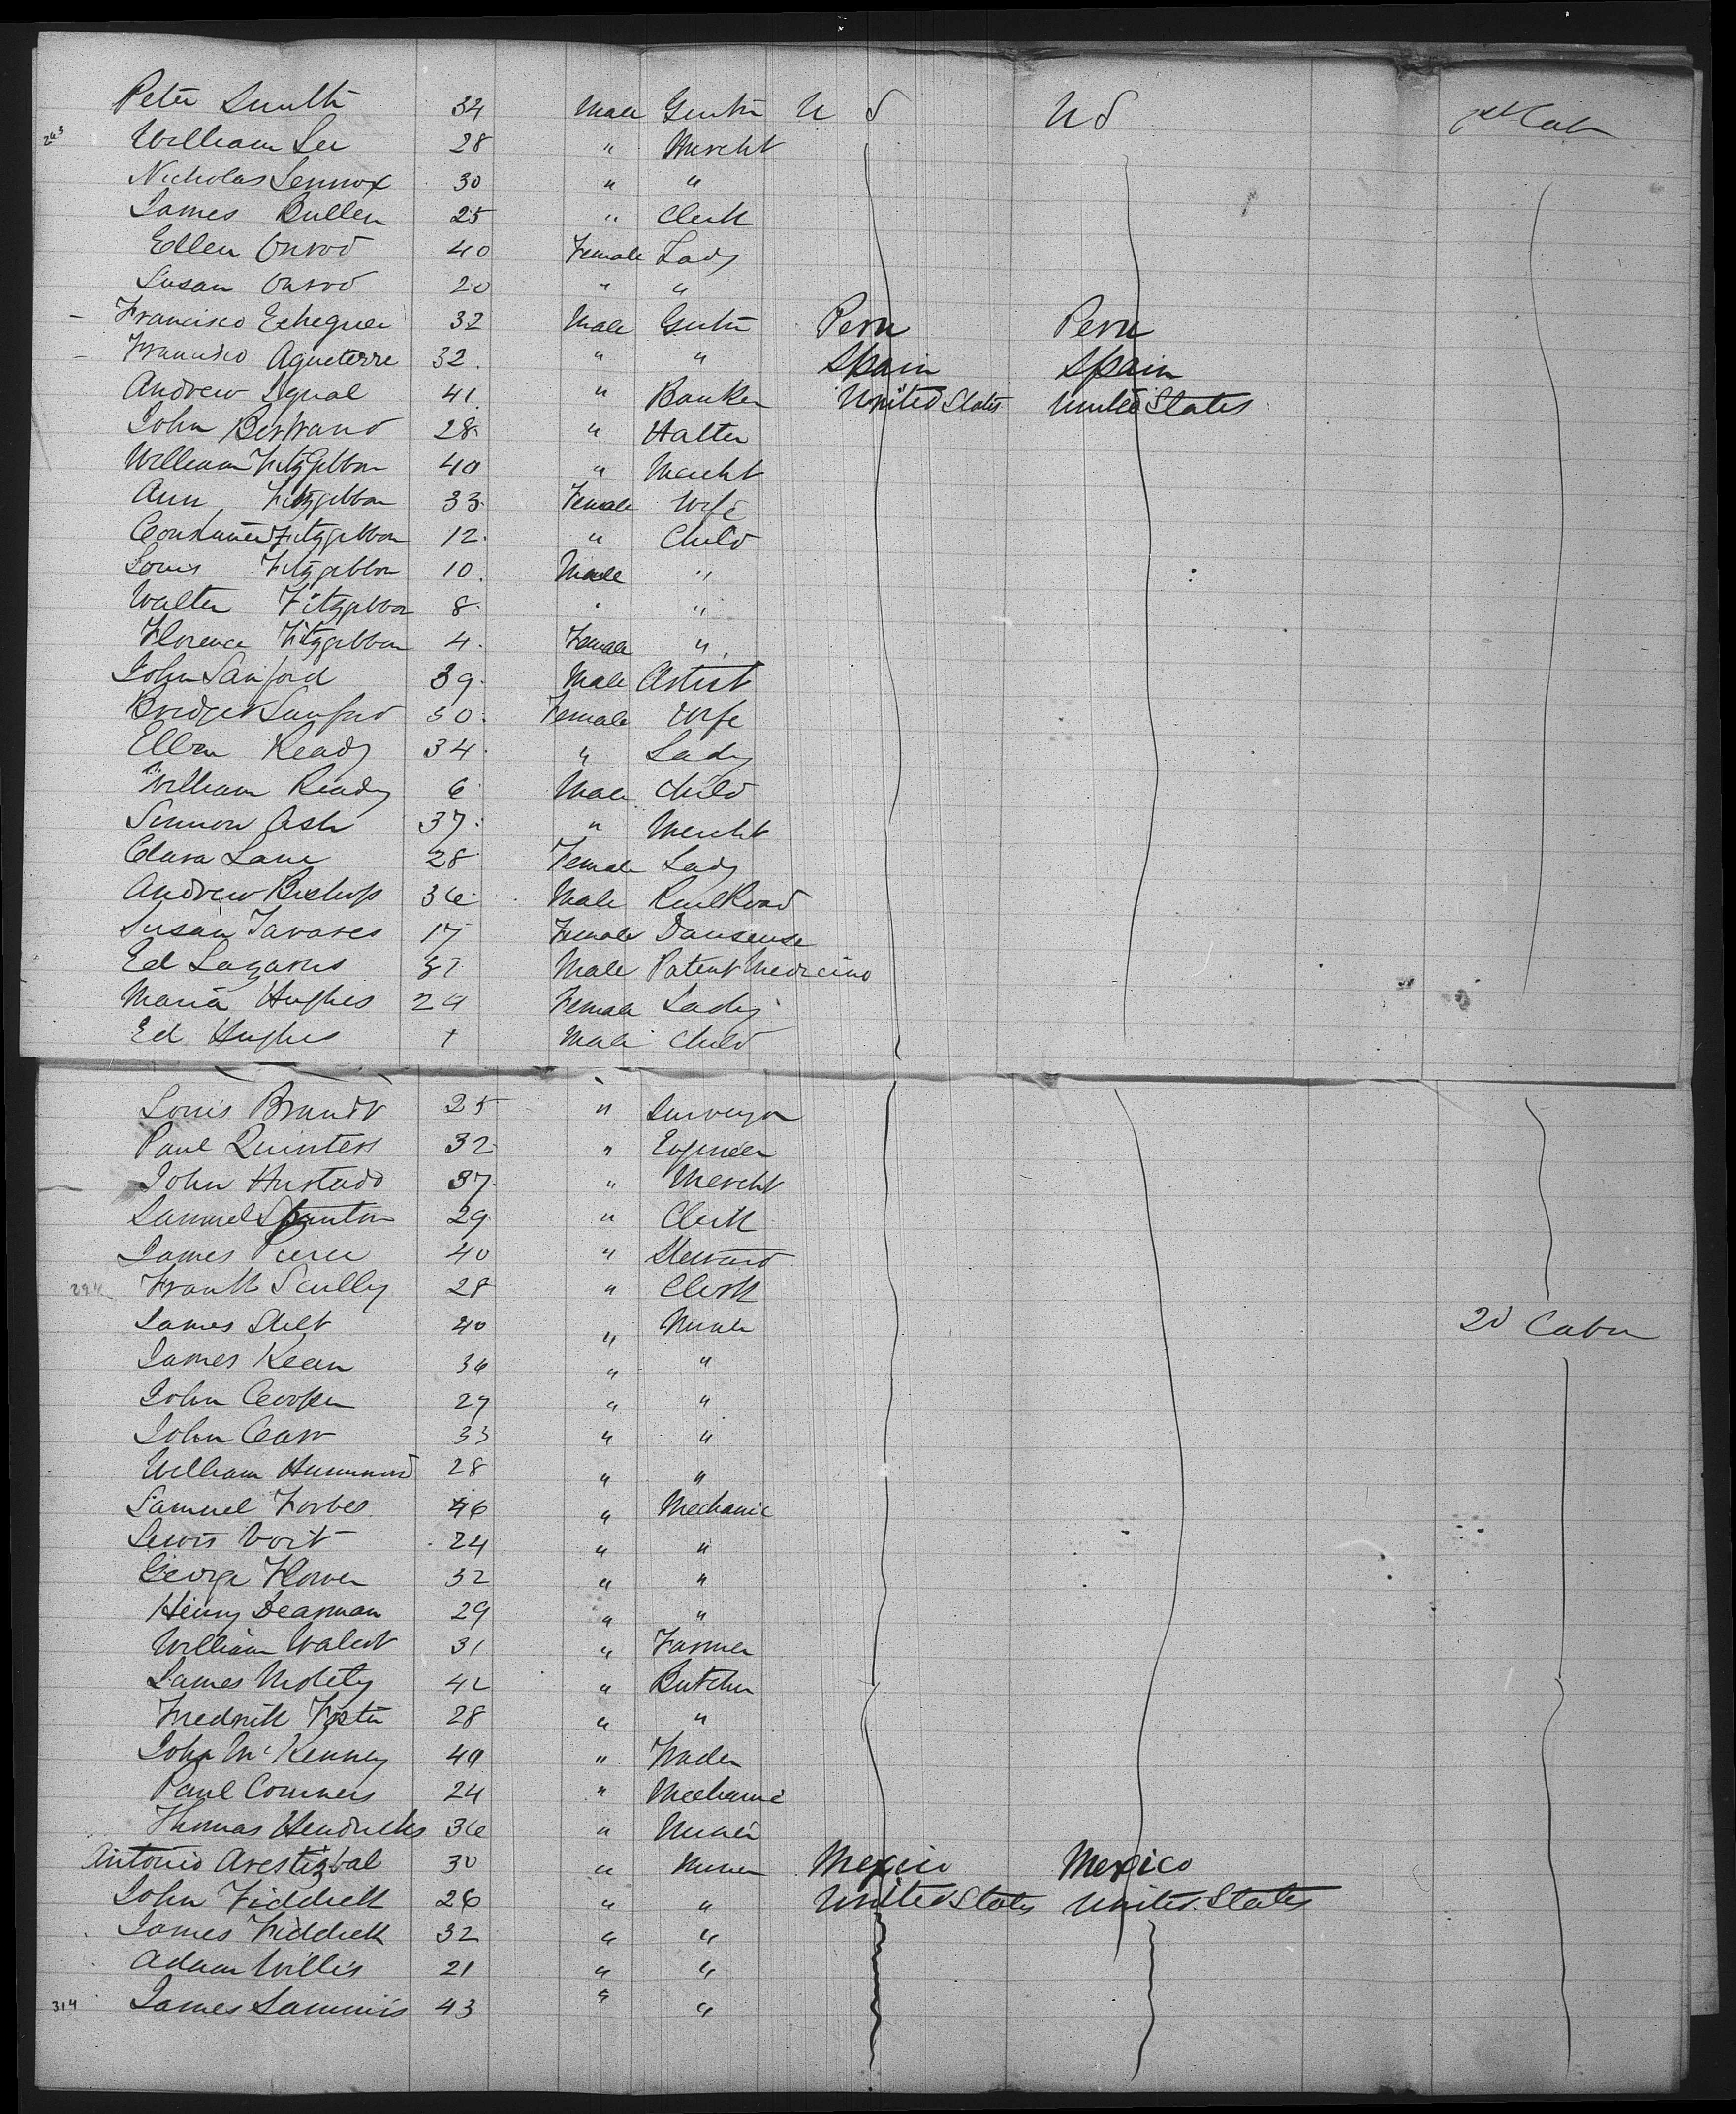 Peter Smith 34 Male Gentn U S U S 1st Cab
243 William Lee 28 " Mercht
Nicholas Lennox 30 " "
James Bullen 25 " Clerk
Ellen 40 Female Lady
Susan 20 " "
Francisco Echeguer 32 Male Gentn Peru Peru
Francisco Agueterre 32. " " Spain Spain
Andrew Signal 41. " Banker United States United States
John Bertrand 28 " Hatter
William FitzGibbon 40 " Mercht
Ann Fitzgibbon 33. Female Wife
Fitzgibbon 12. " Child
Louis Fitzgibbon 10. Male "
Walter Fitzgibbon 8. " "
Florence Fitzgibbon 4. Female "
John Sanford 39. Male Artist
Bridget Sanford 30. Female Wife
Ellen Ready 34. " Lady
William Ready 6 Male Child
Simmon Ash 37. " Mercht
Clara Lane 28 Female Lady
Andrew Bishop 36. Male RailRoad
Susan Tavares 17 Female Danseuse
Ed Lazarus Male Patent Medicine
Maria Hughes 29 Female Lady
Ed Hughes Male Child
Louis Brandt 25 " Surveyor
Paul Quinters 32 " Engineer
John Hurtado 37. " Mercht
Samuel Stanton 29 " Clerk
James Pierce 40 " Steward
294 Frank Scully 28 " Clerk
James Stilt 40 " Miner 2d Cabin
James Kean 36 " "
John Cooper 27 " "
John Carr 33 " "
William Hammond 28 " "
Samuel Forbes 46 " Mechanic
Lewis Voit 24 " "
George Flower 32 " "
Henry Dearman 29 " "
William Walcot 31 " Farmer
James Molety 42 " Butcher
Fredrick Foster 28 " "
John McKenney 40 " Trader
Paul Conners 24 " Mechanic
Thomas Hendricks 36 " Miner
Antonio Arestizbal 30 " Miner Mexico Mexico
John Fiddick 26 " " United States United States
James Fiddick 32 " "
Adam Willis 21 " "
314 James Sammis 43 " "